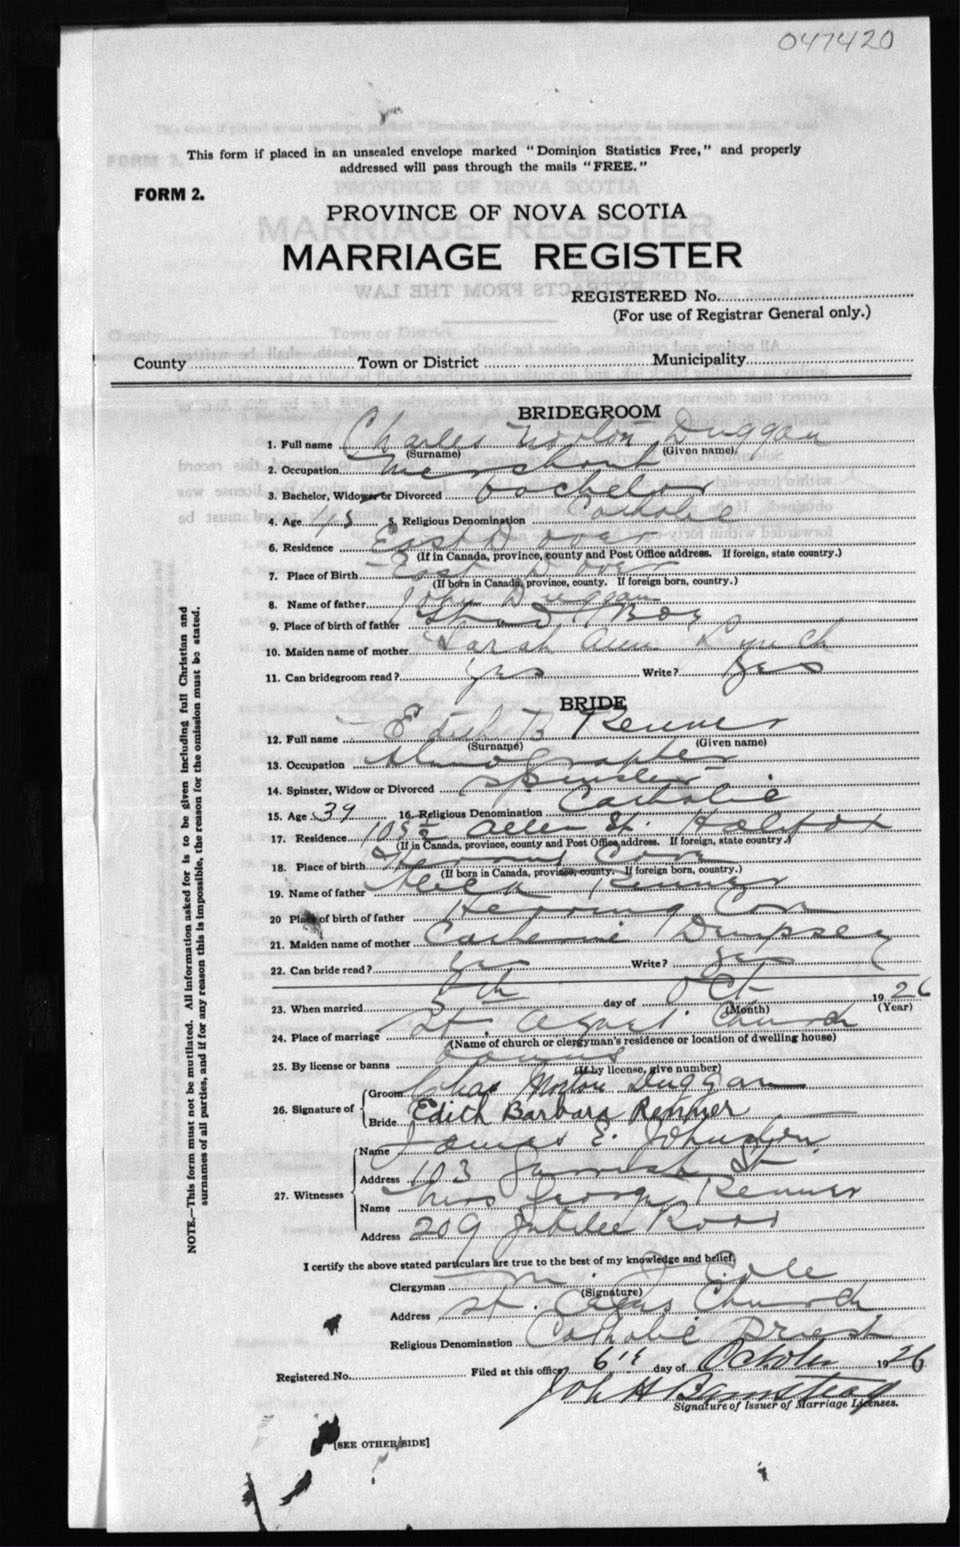 047420
This form if placed in an unsealed envelope marked "Dominion Statistics Free," and properly
addressed will pass through the mails "FREE."
FORM 2.
PROVINCE OF NOVA SCOTIA
MARRIAGE REGISTER
REGISTERED No.
(For use of Registrar General only.)
County Town or District Municipality
BRIDEGROOM
1. Full name Charles Norton Duggan
(Surname) (Given name)
2. Occupation Merchant
3. Bachelor, Widower or Divorced bachelor
4. Age 43 5. Religious Denomination Catholic
6. Residence East Dover
(If in Canada, province, county and Post Office address. If foreign, state country.)
7. Place of Birth East Dover
(If born in Canada, province, county. If foreign born, country.)
8. Name of father John Duggan
9. Place of birth of father Shad Bay
10. Maiden name of mother Sarah Ann Lynch
11. Can bridegroom read? yes Write? yes
BRIDE
12. Full name Edith B Renner
(Surname) (Given name)
13. Occupation Stenographer
14. Spinster, Widow or Divorced spinster
15. Age 39 16. Religious Denomination Catholic
17. Residence 105½ Allen St. Halifax
(If in Canada, province, county and Post Office address. If foreign, state country.)
18. Place of birth Herring Cove
(If born in Canada, province, county. If foreign born, country.)
19. Name of father Renner
20 Place of birth of father Herring Cove
21. Maiden name of mother Catherine Dempsey
22. Can bride read? yes Write? yes
23. When married 5th day of Oct 1926
(Month) (Year)
24. Place of marriage St. Agnes' Church
(Name of church or clergyman's residence or location of dwelling house)
25. By license or banns banns
(If by license, give number)
26. Signature of
Groom Chas Norton Duggan
Bride Edith Barbara Renner
27. Witnesses
Name James E. Johnston
Address 103 Gerrish St.
Name Mrs George Renner
Address 209 Jubilee Road
I certify the above stated particulars are true to the best of my knowledge and belief.
Clergyman M. J. Cole
(Signature)
Address St. Agnes Church
Religious Denomination Catholic Priest
Registered No. Filed at this office 6th day of October 1926
John H Barnstead
Signature of Issuer of Marriage Licenses.
[SEE OTHER SIDE]
NOTE.—This form must not be mutilated. All information asked for is to be given including full Christian and
surnames of all parties, and if for any reason this is impossible, the reason for the omission must be stated.